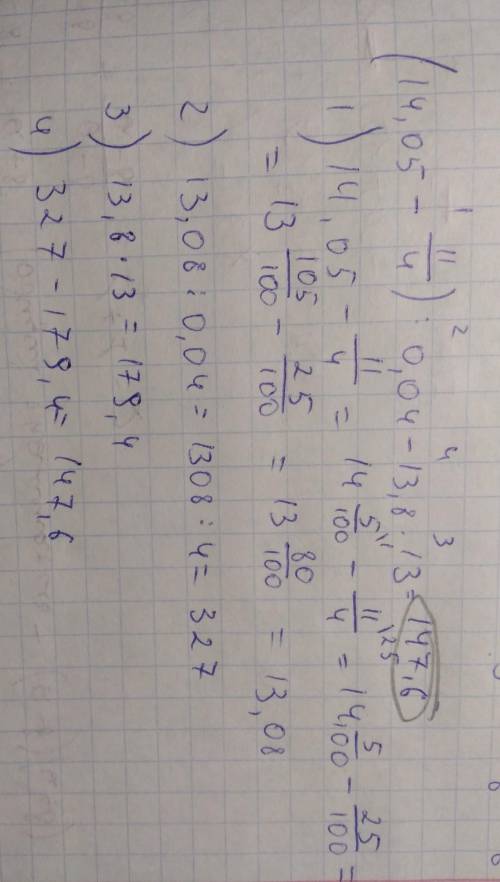 (14,05 - 11/4) : 0,04 - 13,8 · 13 = 147,6
1 2 4 3
1) 14,05 - 11/4 = 14 5/100 \1 - 11/4 \25 = 14,5/100 - 25/100 =
= 13 105/100 - 25/100 = 13 80/100 = 13,08
2) 13,08 : 0,04 = 1308 : 4 = 327
3) 13,8 · 13 = 179,4
4) 327 - 179,4 = 147,6